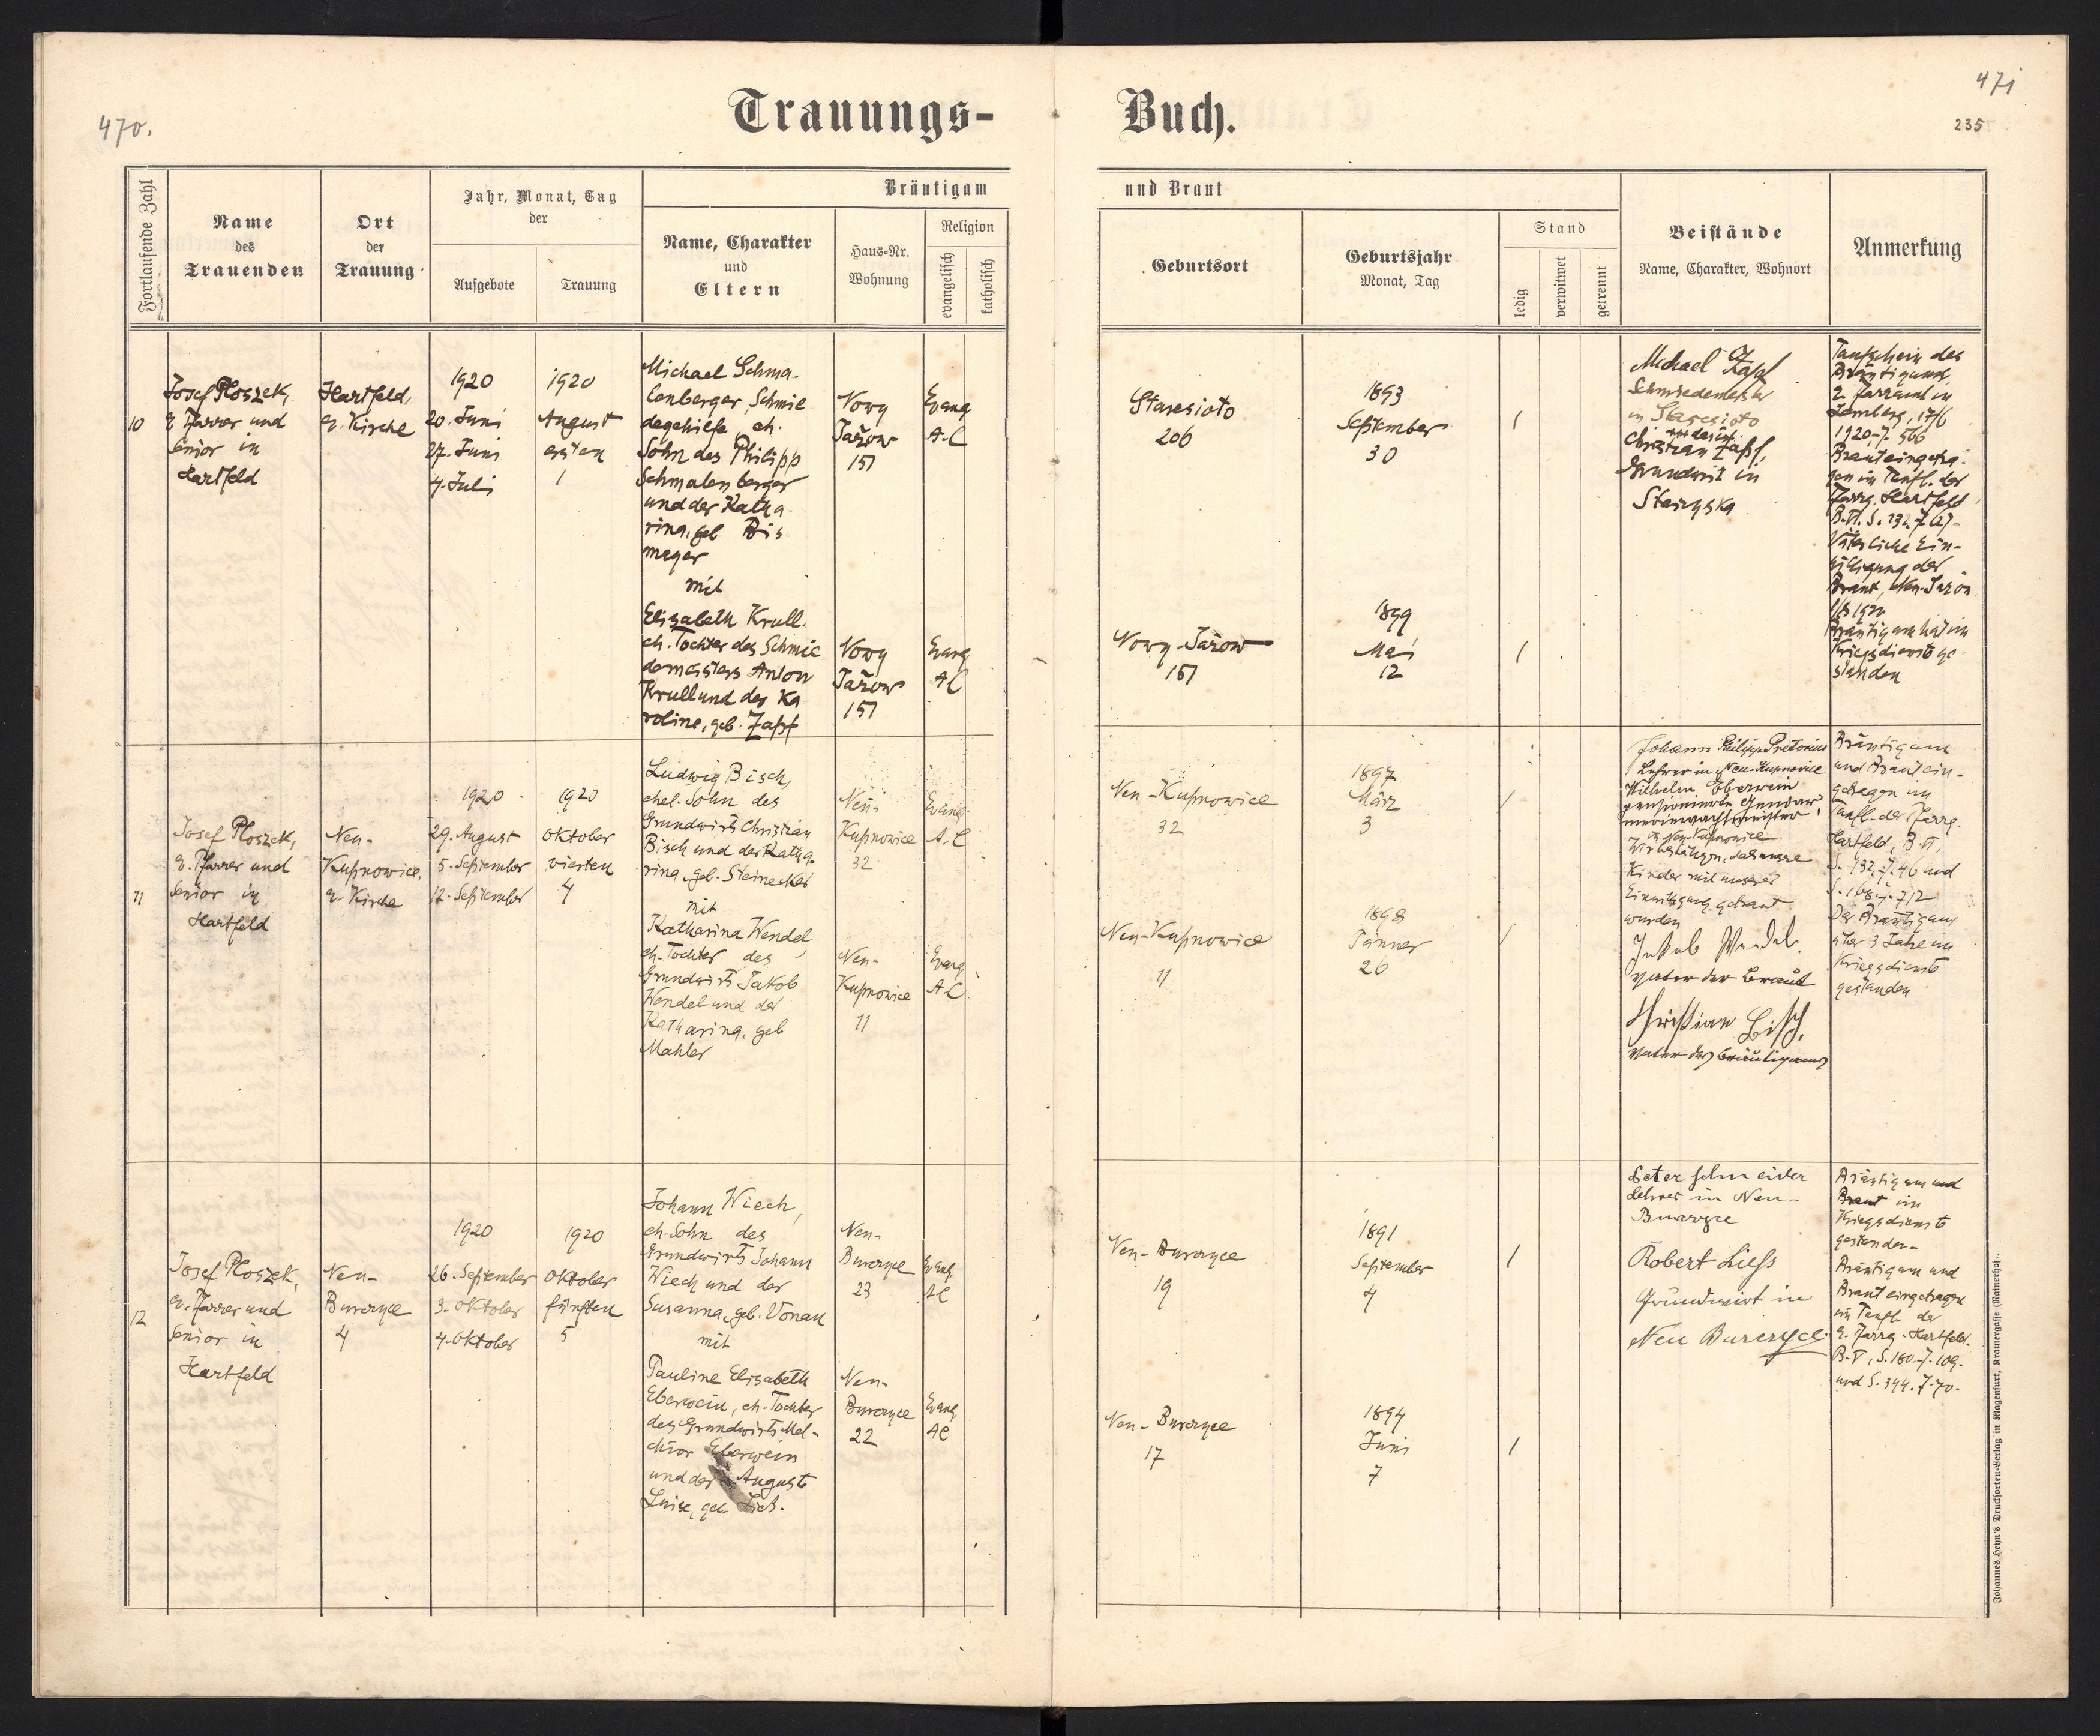 470.
Trauungs-
Buch.
471
235
Fortlaufende Zahl
Name
des
Trauenden
Ort
der
Trauung
Jahr, Monat, Tag
der
Aufgebote
Trauung
Bräutigam
Name, Charakter
und
Eltern
Haus-Nr.
Wohnung
Religion
evangelisch
katholisch
und Braut
Geburtsort
Geburtsjahr
Monat, Tag
Stand
ledig
verwitwet
getrennt
Beistände
Name, Charakter, Wohnort
Anmerkung
10
Josef Ploszek,
e. Pfarrer und
Senior in
Hartfeld
Hartfeld,
e. Kirche
1920
20. Juni
27. Juni
4. Juli
1920
August
ersten
1
Michael Schma-
lenberger, Schmie
degehilfe, eh.
Sohn des Philipp
Schmalenberger
und der Katha
rina, geb Bis
meyer
mit
Elisabeth Krull.
eh. Tochter des Schmie
demeisters Anton
Krull und der Ka
roline, geb. Zapf
Nowy
Jażow
151
Evang
A.C
Nowy
Jażow
151
Evang
AC
Staresioto
206
1893
September
30
/
Nowy-Jażow
151
1899
Mai
12
/
Michael Zapf
Schmiedemeister
in Staresioto
Christian Zapf,
Grundwirt in
Starzyska
Taufschein des
Bräutigams,
e. Pfarramt in
Lemberg, 17/6
1920, Z. 566
Braut eingetra-
gen im Taufb. der
Pfarrg. Hartfeld
Väterliche Ein-
willigung der
Braut, Neu-Jazow
1/8 1920
Bräutigam hat im
Kriegsdienste ge
standen
11
Josef Ploszek,
e. Pfarrer und
Senior in
Hartfeld
Neu-
Kupnowice,
e. Kirche
1920
29. August
5. September
12. September
1920
Oktober
vierten
4
Ludwig Bisch,
ehel. Sohn des
Grundwirts Christian
Bisch und der Katha
rina, geb. Steinecker
mit
Katharina Wendel,
eh. Tochter des
Grundwirts Jakob
Wendel und der
Katharina, geb
Mahler
Neu-
Kupnowice
32
Evang
A.C
Neu-
Kupnowice
11
Evang
A.C.
Neu-Kupnowice
32
1897
März
3
/
Neu-Kupnowice
11
1898
Jänner
26
/
Johann Philipp Pretorius
Lehrer in Neu-Kupnowice
Wilhelm Eberwein
in Neu-Kupnowice
Wir bestätigen, daß unsere
Kinder mit unserer
Einwilligung getraut
wurden
Jakob Wendel.
Vater der Braut
Christian Bisch,
Vater des Bräutigams
Bräutigam
und Braut ein-
getragen im
Taufb. der Pfarrg.
Hartfeld, B. VI,
S. 132, Z. 46 und
S. 168, Z. 712
Der Bräutigam
über 3 Jahre im
Kriegsdienste
gestanden
12
Josef Ploszek,
e. Pfarrer und
Senior in
Hartfeld
Neu-
Burczyce
4
1920
26. September
3. Oktober
4. Oktober
1920
Oktober
fünften
5
Johann Wiech,
eh. Sohn des
Grundwirts Johann
Wiech und der
Susanna, geb. Vonau
mit
Pauline Elisabeth
Eberwein, eh. Tochter
des Grundwirts Mel-
chior Eberwein
und der Auguste
Luise, geb Ließ.
Neu-
Burczyce
23
Evang.
AC
Neu-
Burczyce
22
Evang
AC
Neu-Burczyce
19
1891
September
4
/
Neu-Burczyce
17
1894
Juni
7
/
Peter Schneider
Lehrer in Neu-
Burczyce
Robert Ließ
Grundwirt in
Neu Burczyce.
Bräutigam und
Braut im
Kriegsdienste
gestanden-
Bräutigam und
Braut eingetragen
im Taufb. der
e. Pfarrg. Hartfeld.
B. V, S. 180. Z. 109.
und S. 394. Z. 70.
Johannes Heyn's Drucksorten-Verlag in Klagenfurt, Kramergasse (Rainerhof).